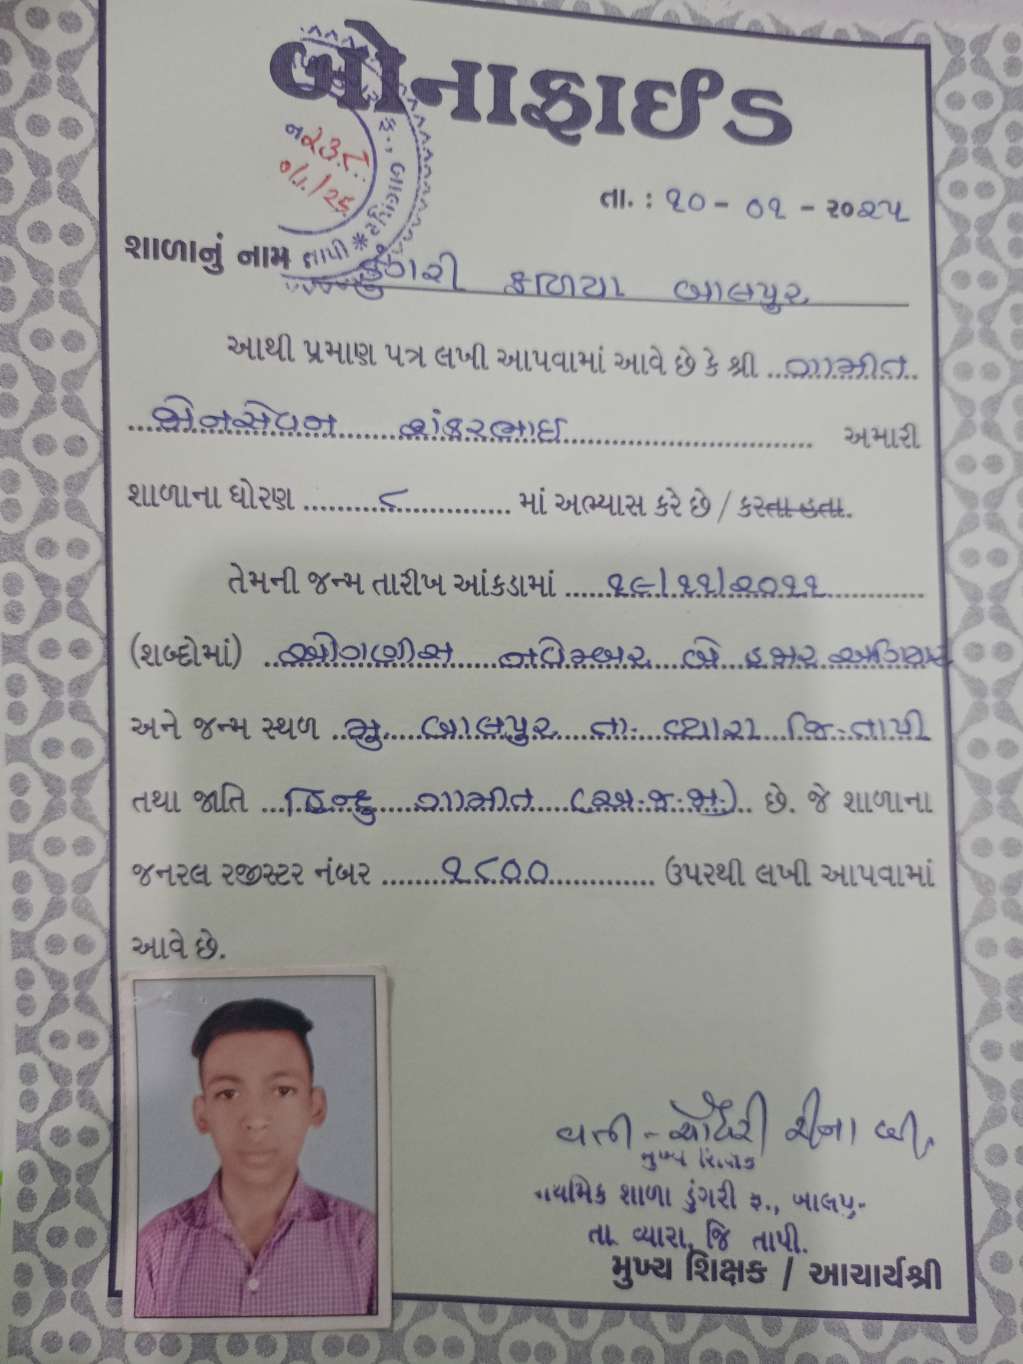 બોનાફાઈડ
તા. : ૧૦ - ૦૧ - ૨૦૨૫
શાળાનું નામ ડુંગરી ફળિયા બાલપુર
આથી પ્રમાણ પત્ર લખી આપવામાં આવે છે કે શ્રી ગામીત
શંકરભાઈ અમારી
શાળાના ધોરણ ૮ માં અભ્યાસ કરે છે / કરતા હતા.
તેમની જન્મ તારીખ આંકડામાં ૧૯/૧૧/૨૦૧૧
(શબ્દોમાં) ઓગણીસ નવેમ્બર બે હજાર અગિયાર
અને જન્મ સ્થળ મુ. બાલપુર તા. વ્યારા જિ. તાપી
તથા જાતિ હિન્દુ ગામીત (અ.જ.જા.) છે. જે શાળાના
જનરલ રજીસ્ટર નંબર ૧૮૦૦ ઉપરથી લખી આપવામાં
આવે છે.
વતી - ચૌધરી રીના બી.
મુખ્ય શિક્ષક
શાળા ડુંગરી ફ., બાલપુર
તા. વ્યારા, જિ તાપી.
મુખ્ય શિક્ષક / આચાર્યશ્રી